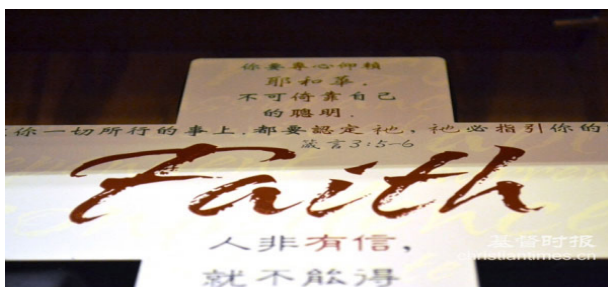 你要專心仰賴
耶和華，
不可倚靠自己
的聰明，
你一切所行的事上,都要認定祂，祂必指引你的
箴言3:5-6
Faith
人非有信，
就不能得
基督时报
christiantimes.cn